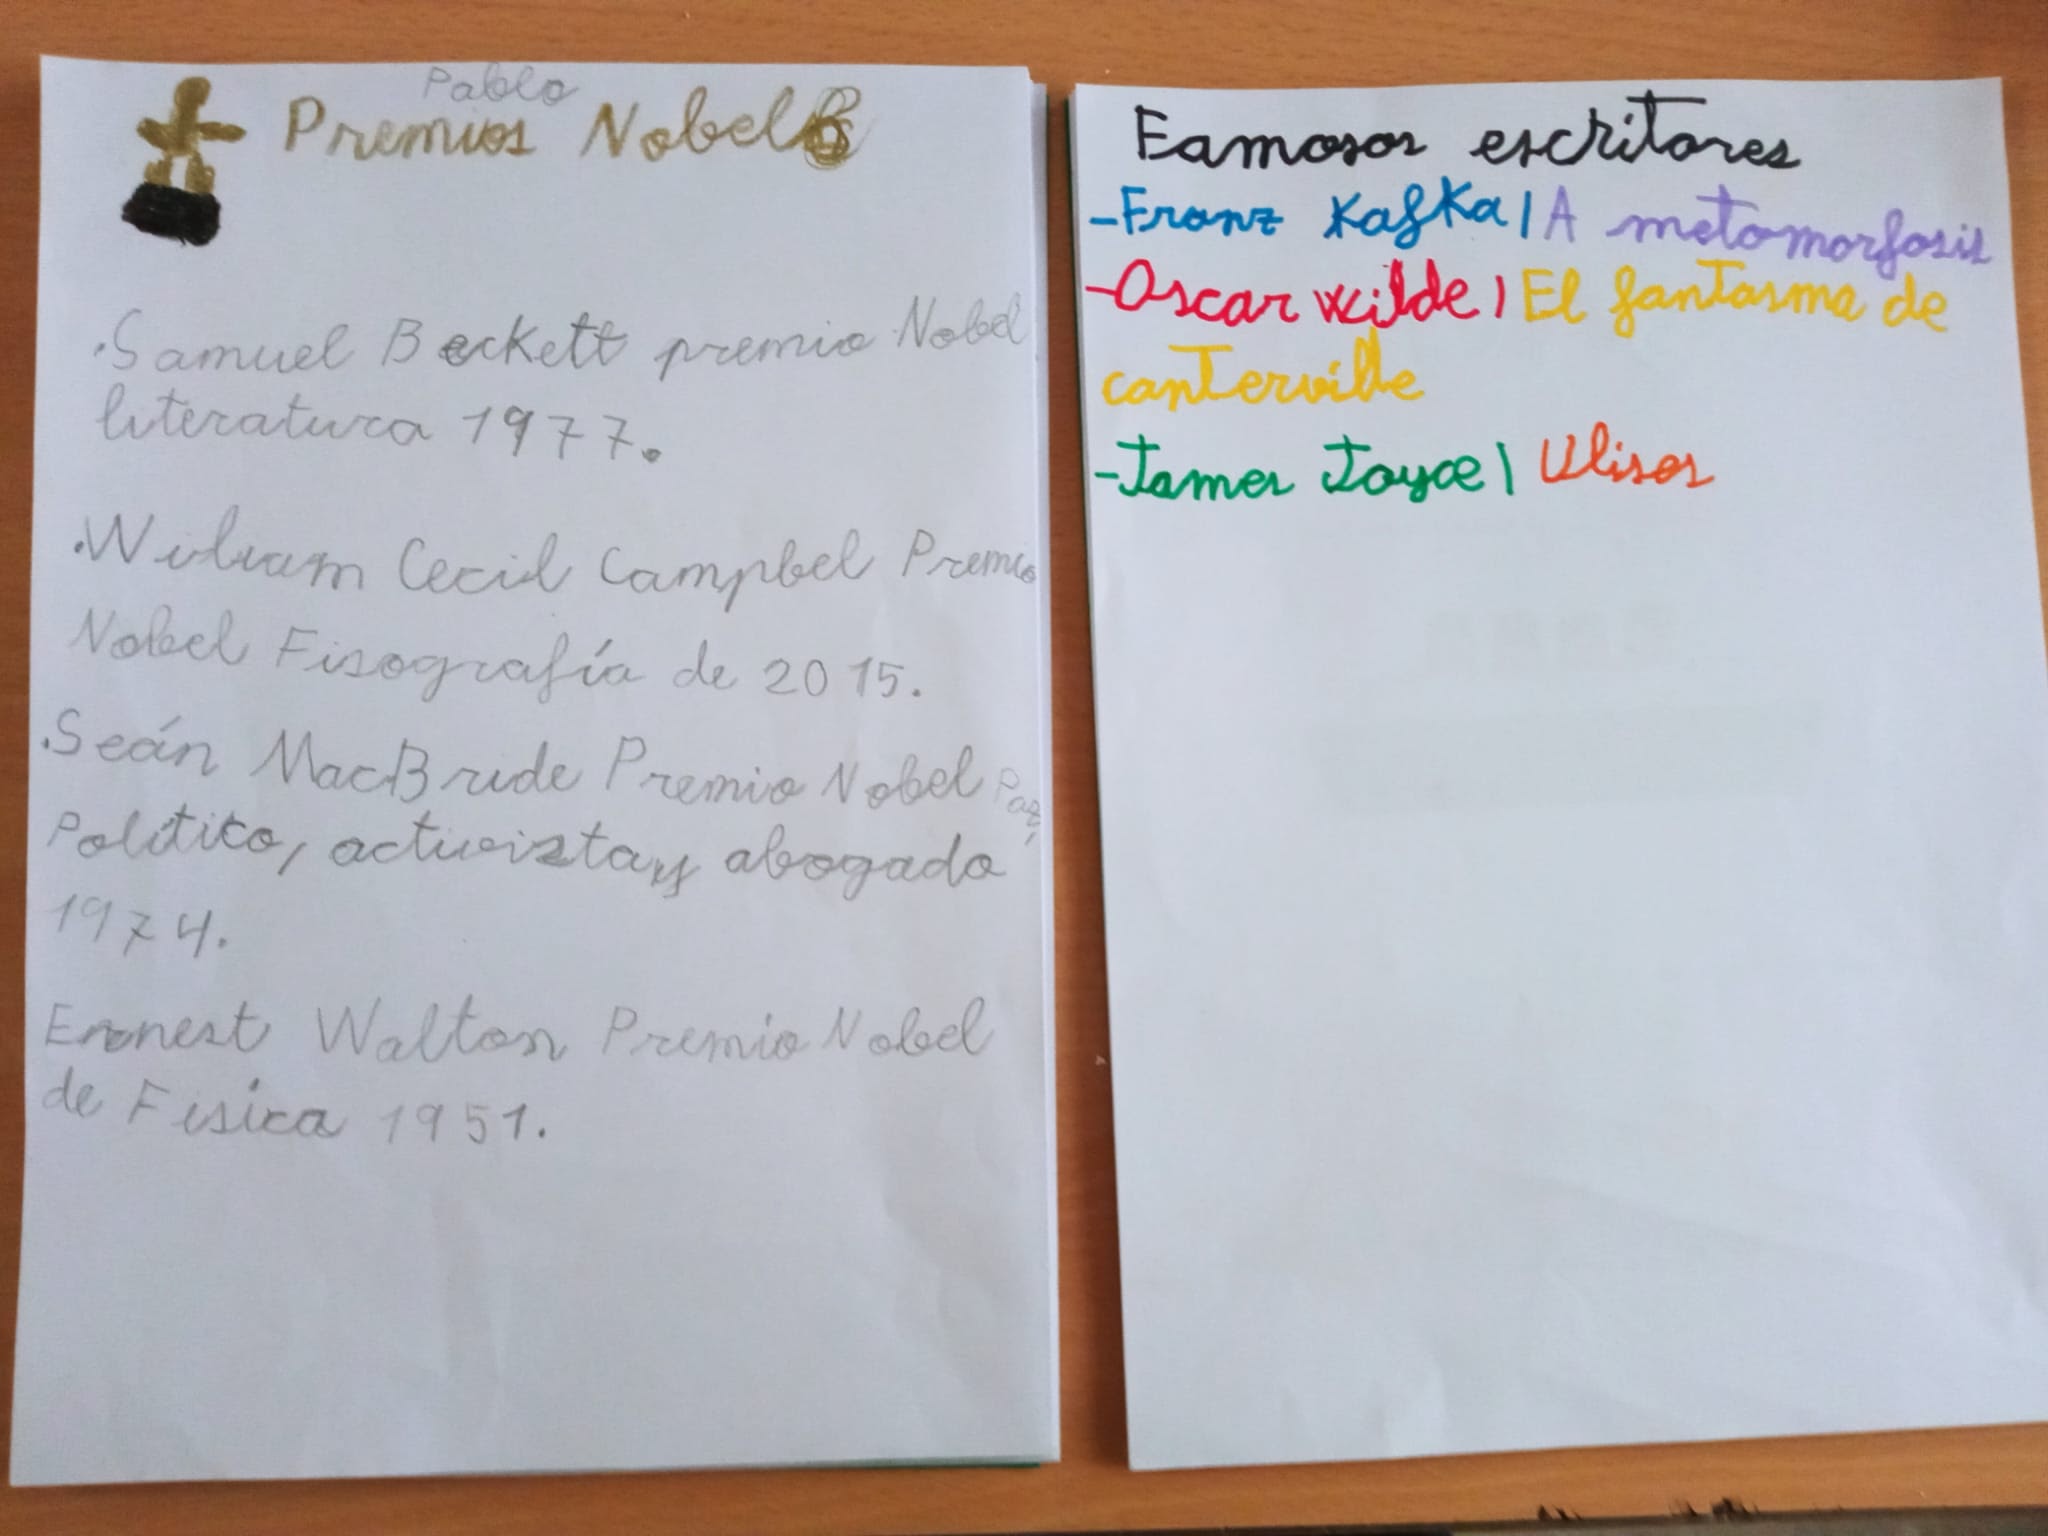 Pablo
Premios Nobel
.Samuel Beckett premio Nobel
literatura 1977.
.Wiliam Cecil Campbel Premio
Nobel Fisografía de 2015.
.Seán MacBride Premio Nobel Paz,
Político, activista y abogado
1974.
Ernest Walton Premio Nobel
de Fisica 1951.
Famosos escritores
-Franz Kafka | A metamorfosis
-Oscar Wilde | El fantasma de
canterville
-James Joyce | Ulises